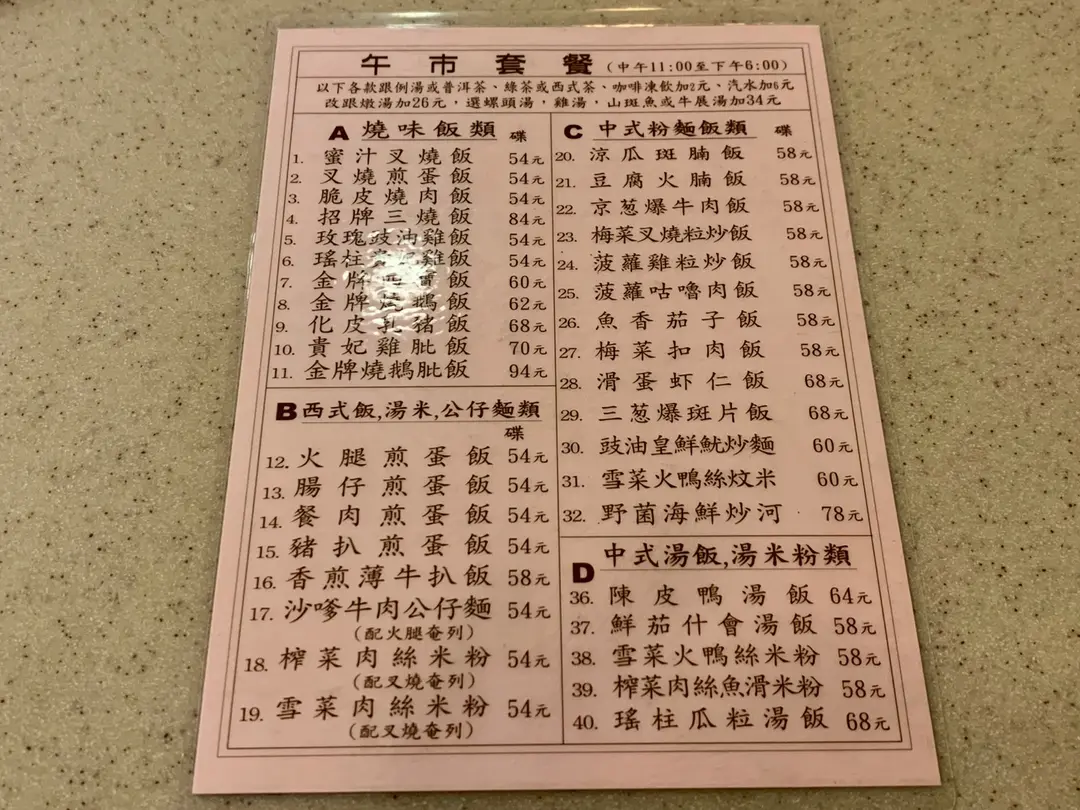 午市套餐(中午11:00至下午6:00)
以下各款跟例湯或普洱茶、綠茶或西式茶、咖啡凍飲加2元、汽水加6元
改跟燉湯加26元，選螺頭湯，雞湯，山斑魚或牛展湯加34元
A 燒味飯類 碟
1. 蜜汁叉燒飯 54元
2. 叉燒煎蛋飯 54元
3. 脆皮燒肉飯 54元
4. 招牌三燒飯 84元
5. 玫瑰豉油雞飯 54元
6. 瑤柱貴妃雞飯 54元
7. 金牌 飯 60元
8. 金牌燒鵝飯 62元
9. 化皮乳豬飯 68元
10. 貴妃雞髀飯 70元
11. 金牌燒鵝髀飯 94元
B 西式飯,湯米,公仔麵類
碟
12. 火腿煎蛋飯 54元
13. 腸仔煎蛋飯 54元
14. 餐肉煎蛋飯 54元
15. 豬扒煎蛋飯 54元
16. 香煎薄牛扒飯 58元
17. 沙嗲牛肉公仔麵 54元
(配火腿奄列)
18. 榨菜肉絲米粉 54元
(配叉燒奄列)
19. 雪菜肉絲米粉 54元
(配叉燒奄列)
C 中式粉麵飯類 碟
20. 涼瓜斑腩飯 58元
21. 豆腐火腩飯 58元
22. 京葱爆牛肉飯 58元
23. 梅菜叉燒粒炒飯 58元
24. 菠蘿雞粒炒飯 58元
25. 菠蘿咕嚕肉飯 58元
26. 魚香茄子飯 58元
27. 梅菜扣肉飯 58元
28. 滑蛋虾仁飯 68元
29. 三葱爆斑片飯 68元
30. 豉油皇鮮魷炒麵 60元
31. 雪菜火鴨絲炆米 60元
32. 野菌海鮮炒河 78元
D 中式湯飯,湯米粉類
36. 陳皮鴨湯飯 64元
37. 鮮茄什會湯飯 58元
38. 雪菜火鴨絲米粉 58元
39. 榨菜肉絲魚滑米粉 58元
40. 瑤柱瓜粒湯飯 68元